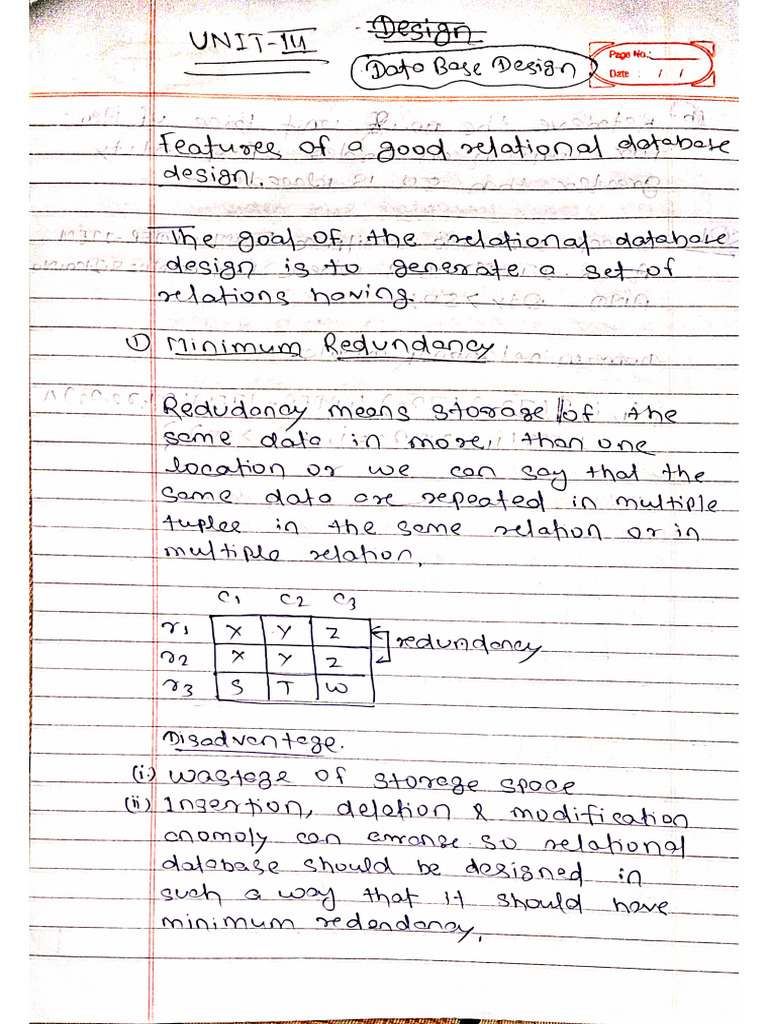 UNIT-14
Design
Data Base Design
Page No.:
Date : / /
Features of a good relational database
design.
The goal of the relational database
design is to generate a set of
relations having.
① Minimum Redundancy
Redudancy means storage of the
same data in more than one
location or we can say that the
same data are repeated in multiple
tuplee in the same relation or in
multiple relation.
C1 C2 C3
r1 X Y Z
r2 X Y Z
redundancy
r3 S T W
Disadvantage.
(i) Wastage of storage space
(ii) Insertion, deletion & modification
anomoly can arranse so relational
database should be designed in
such a way that it should have
minimum redendancy.